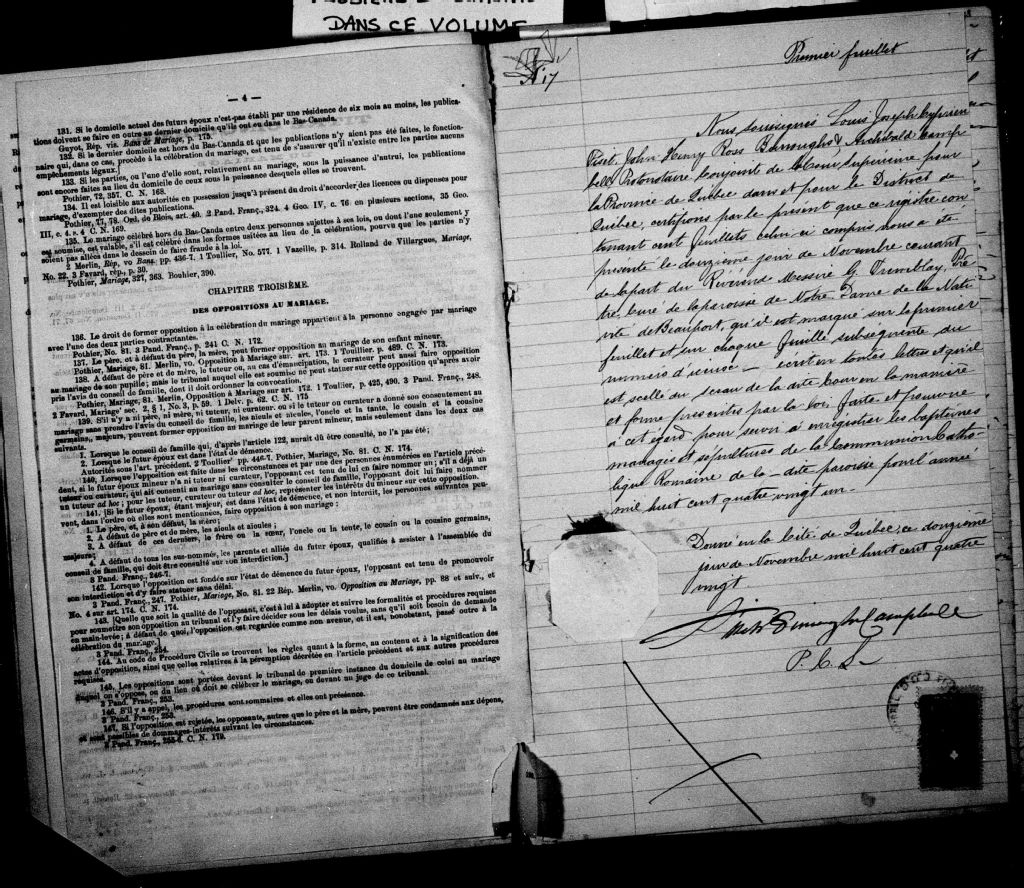 DANS CE VOLUME
— 4 —
131. Si le domicile actuel des futurs époux n'est-pas établi par une résidence de six mois au moins, les publica-
tions doivent se faire en outre au dernier domicile qu'ils ont eu dans le Bas-Canada.
Guyot, Rép. vis. Bans de Mariage, p. 175.
132. Si le dernier domicile est hors du Bas-Canada et que les publications n'y aient pas été faites, le fonction-
naire qui, dans ce cas, procède à la célébration du mariage, est tenu de s'assurer qu'il n'existe entre les parties aucuns
empêchements légaux.]
133. Si les parties, ou l'une d'elles sont, relativement au mariage, sous la puissance d'autrui, les publications
sont encore faites au lieu du domicile de ceux sous la puissance desquels elles se trouvent.
Pothier, 72, 357. C. N. 168.
134. Il est loisible aux autorités en possession jusqu'à présent du droit d'accorder des licences ou dispenses pour
mariage, d'exempter des dites publications.
Pothier, 77, 78. Ord. de Blois, art. 40. 2 Pand. Franç., 324. 4 Geo. IV, c. 76 en plusieurs sections, 35 Geo.
III, c. 4 s. 4 C. N. 169.
135. Le mariage célébré hors du Bas-Canada entre deux personnes sujettes à ses lois, ou dont l'une seulement y
est soumise, est valable, s'il est célébré dans les formes usitées au lieu de la célébration, pourvu que les parties n'y
soient pas allées dans le dessein de faire fraude à la loi.
2 Merlin, Rép, vo Bans, pp. 436-7. 1 Toullier, No. 577. 1 Vazeille, p. 314. Rolland de Villargues, Mariage,
No. 22. 3 Favard, rép., p. 30.
Pothier, Mariage, 327, 363. Bouhier, 390.
CHAPITRE TROISIÈME.
DES OPPOSITIONS AU MARIAGE.
136. Le droit de former opposition à la célébration du mariage appartient à la personne engagée par mariage
avec l'une des deux parties contractantes.
Pothier, No. 81. 3 Pand. Franç., p. 241 C. N. 172.
137. Le père, et à défaut du père, la mère, peut former opposition au mariage de son enfant mineur.
Pothier, Mariage, 81. Merlin, vo. Opposition à Mariage sur. art. 173. 1 Toullier, p. 489. C. N. 173.
138. A défaut de père et de mère, le tuteur ou, au cas d'émancipation, le curateur peut aussi faire opposition
au mariage de son pupille; mais le tribunal auquel elle est soumise ne peut statuer sur cette opposition qu'après avoir
pris l'avis du conseil de famille, dont il doit ordonner la convocation.
Pothier, Mariage, 81. Merlin, Opposition à Mariage sur art. 172. 1 Toullier, p. 425, 490. 3 Pand. Franç., 248.
2 Favard, Mariage' sec. 2, § 1, No. 3, p. 59. 1 Delv. p. 62. C. N. 175
139. S'il n'y a ni père, ni mère, ni tuteur, ni curateur, ou si le tuteur ou curateur a donné son consentement au
mariage sans prendre l'avis du conseil de famille, les aïeuls et aïeules, l'oncle et la tante, le cousin et la cousine
germains, majeurs, peuvent former opposition au mariage de leur parent mineur, mais seulement dans les deux cas
suivants.
1. Lorsque le conseil de famille qui, d'après l'article 122, aurait dû être consulté, ne l'a pas été;
2. Lorsque le futur époux est dans l'état de démence.
Autorités sous l'art. précédent, 2 Toullier pp. 446-7. Pothier, Mariage, No. 81. C. N. 174.
140. Lorsque l'opposition est faite dans les circonstances et par une des personnes énumérées en l'article précé-
dent, si le futur époux mineur n'a ni tuteur ni curateur, l'opposant est tenu de lui en faire nommer un; s'il a déjà
tuteur ou curateur, qui ait consenti au mariage sans consulter le conseil de famille, l'opposant doit lui faire nommer
un tuteur ad hoc; pour les tuteur, curateur ou tuteur ad hoc, représenter les intérêts du mineur sur cette opposition.
141. [Si le futur époux, étant majeur, est dans l'état de démence, et non interdit, les personnes suivantes peu-
vent, dans l'ordre où elles sont mentionnées, faire opposition à son mariage:
1. Le père, et, à son défaut, la mère;
2. A défaut de père et de mère, les aïeuls et aïeules;
3. A défaut de ces derniers, le frère ou la sœur, l'oncle ou la tante, le cousin ou la cousine germains,
majeurs;
4. A défaut de tous les sus-nommés, les parents et alliés du futur époux, qualifiés à assister à l'assemblée du
conseil de famille, qui doit être consulté sur son interdiction.]
3 Pand. Franç., 246-7.
142. Lorsque l'opposition est fondée sur l'état de démence du futur époux, l'opposant est tenu de promouvoir
son interdiction et d'y faire statuer sans délai.
3 Pand. Franç., 247. Pothier, Mariage, No. 81. 22 Rép. Merlin, vo. Opposition au Mariage, pp. 88 et suiv., et
No. 4 sur art. 174. C. N. 174.
143. [Quelle que soit la qualité de l'opposant, c'est à lui à adopter et suivre les formalités et procédures requises
pour soumettre son opposition au tribunal et l'y faire décider sous les délais voulus, sans qu'il soit besoin de demande
en main-levée; à défaut de quoi, l'opposition est regardée comme non avenue, et il est, nonobstant, passé outre à la
célébration du mariage.]
3 Pand. Franç., 254.
144. Au code de Procédure Civile se trouvent les règles quant à la forme, au contenu et à la signification des
actes d'opposition, ainsi que celles relatives à la péremption décrétée en l'article précédent et aux autres procédures
requises.
145. Les oppositions sont portées devant le tribunal de première instance du domicile de celui au mariage
duquel on s'oppose, ou du lieu où doit se célébrer le mariage, ou devant un juge de ce tribunal.
3 Pand. Franç., 253.
146. S'il y a appel, les procédures sont sommaires et elles ont préséance.
3 Pand. Franç., 253.
147. Si l'opposition est rejetée, les opposants, autres que le père et la mère, peuvent être condamnés aux dépens,
et sont passibles de dommages-intérêts suivant les circonstances.
3 Pand. Franç., 255-6. C. N. 179.
Premier feuillet
Nous, soussignés Louis Joseph Cyprien
Fiset, John Henry Ross Burroughs & Archibald Camp-
bell, Protonotaire Conjoint de la Cour Supérieure pour
la Province de Québec dans et pour le District de
Québec, certifions par le présent que ce registre con
tenant cent feuillets celui-ci compris nous a été
présenté le douzième jour de Novembre courant
de la part du Révérend Messire G. Tremblay, Prê
tre, Curé de la paroisse de Notre Dame de la Nati
vité de Beauport, qu'il est marqué sur le premier
feuillet et sur chaque feuille subséquente du
numéro d'icelui — écrit en toutes lettres et qu'il
est scellé du sceau de la dite cour en la manière
et forme prescrites par la loi faite et pourvue
à cet égard pour servir à enregistrer les baptêmes
mariages et sépultures de la communion Catho-
lique Romaine de la dite paroisse pour l'année
mil huit cent quatre vingt un.
Donné en la Cité de Québec, ce douzième
jour de Novembre mil huit cent quatre
vingt
Fiset Burroughs Campbell
P. C. S.